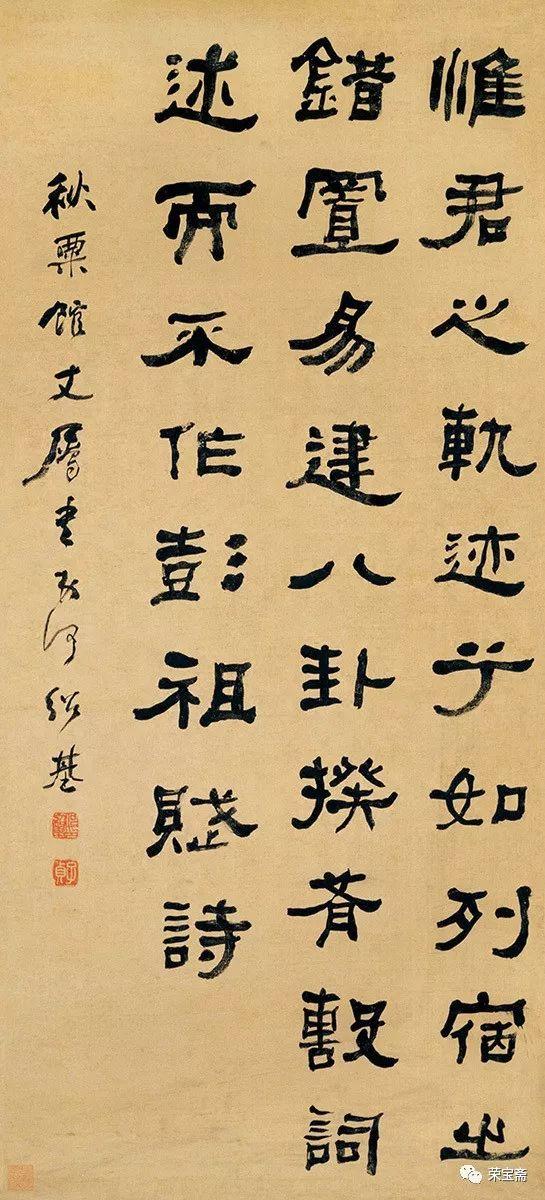 惟君之軌迹兮如列宿之
錯置易建八卦揆肴毄詞
述而不作彭祖賦詩
秋粟館丈屬書弟何紹基
子貞
荣宝斋